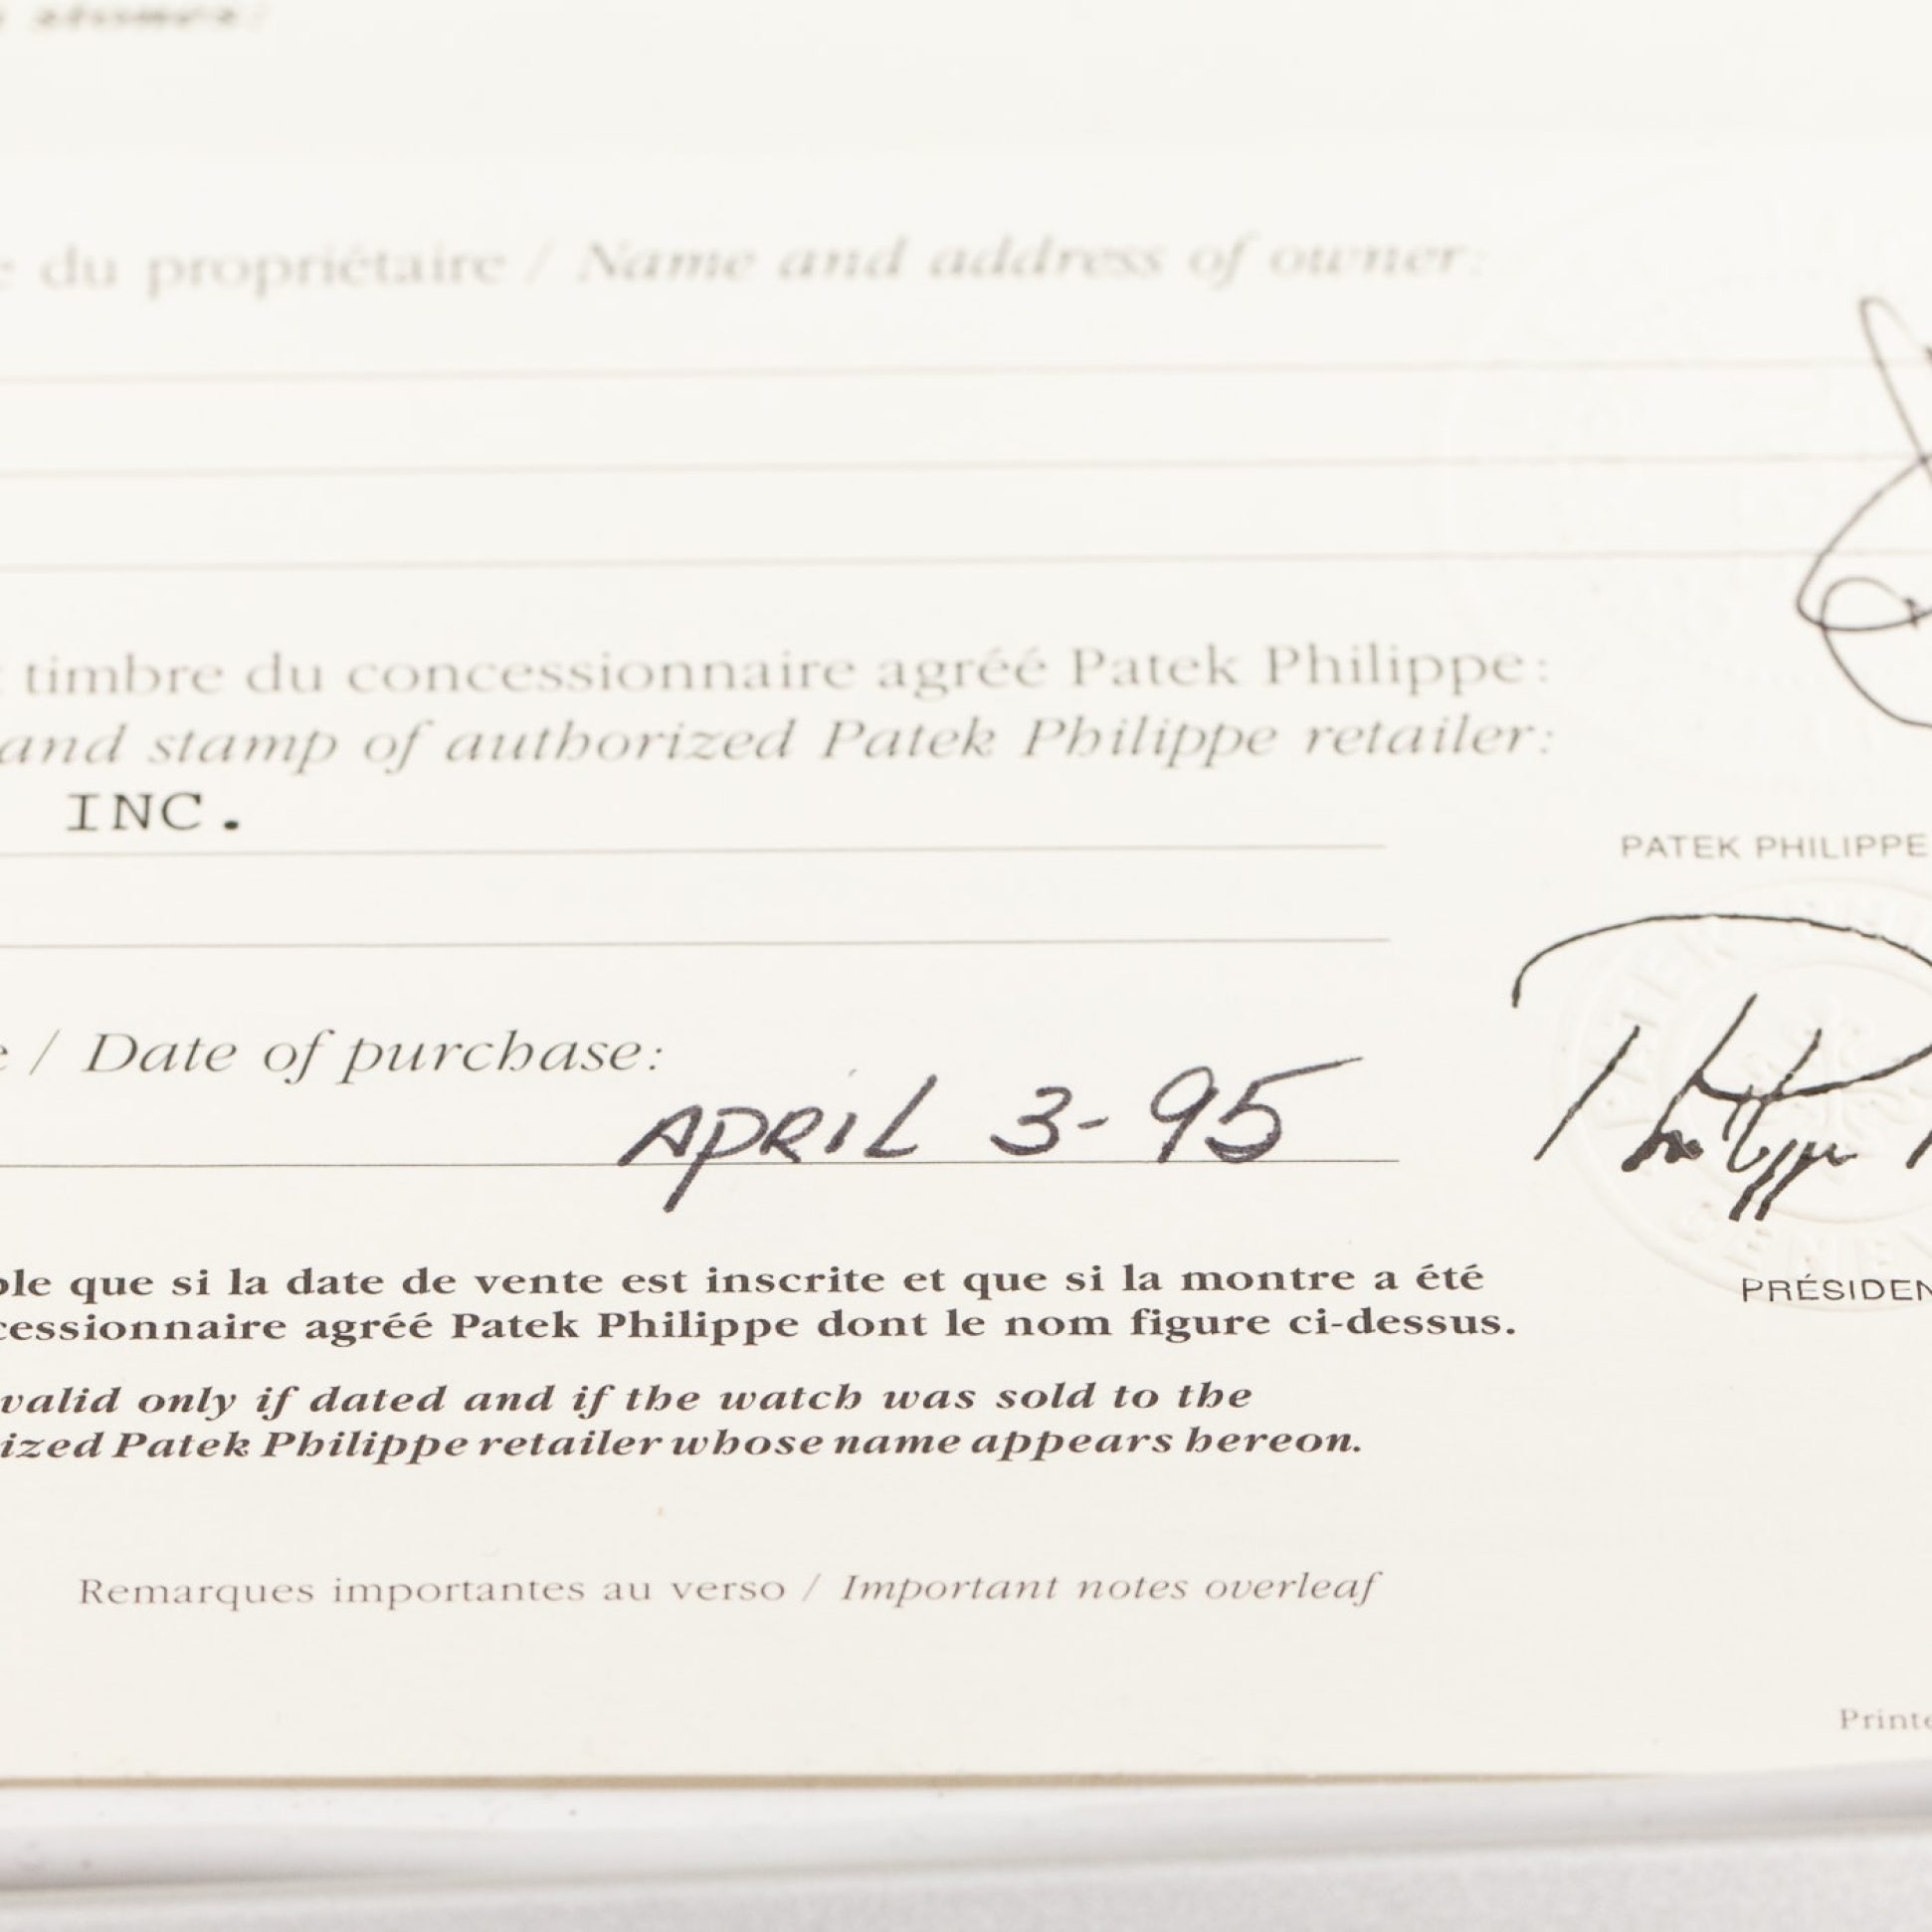 stones:
du propriétaire / Name and address of owner:
timbre du concessionnaire agréé Patek Philippe:
and stamp of authorized Patek Philippe retailer:
INC.
PATEK PHILIPPE
e / Date of purchase:
APRIL 3-95
ble que si la date de vente est inscrite et que si la montre a été
cessionnaire agréé Patek Philippe dont le nom figure ci-dessus.
PRÉSIDEN
valid only if dated and if the watch was sold to the
ized Patek Philippe retailer whose name appears hereon.
Remarques importantes au verso / Important notes overleaf
Printe